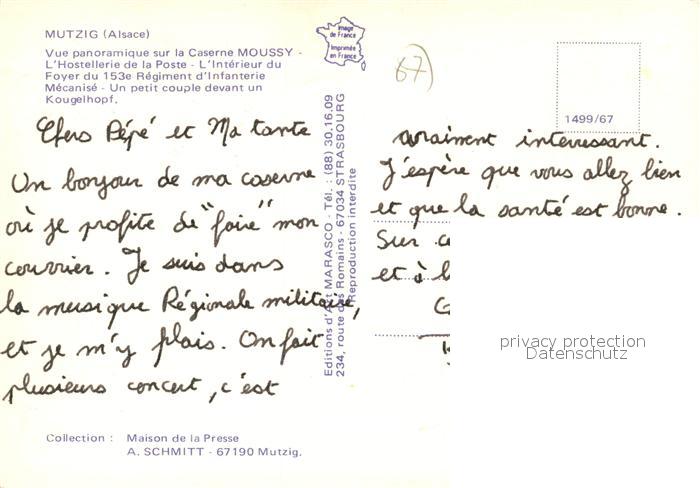 MUTZIG (Alsace)
Vue panoramique sur la Caserne MOUSSY -
L'Hostellerie de la Poste - L'Intérieur du
Foyer du 153e Régiment d'Infanterie
Mécanisé - Un petit couple devant un
Kougelhopf.
Image
de France
Imprimée
en France
67
1499/67
Chers Pépé et Ma tante
Un bonjour de ma caserne
où je profite de "faire" mon
courrier. Je suis dans
la musique Régionale militaire,
et je m'y plais. On fait
plusieurs concert, c'est
vraiment interessant.
J'espère que vous allez bien
et que la santé est bonne.
Sur c
et à b
Editions d'Art MARASCO - Tél. : (88) 30.16.09
234, route des Romains - 67034 STRASBOURG
Reproduction interdite
privacy protection
Datenschutz
Collection : Maison de la Presse
A. SCHMITT - 67190 Mutzig.